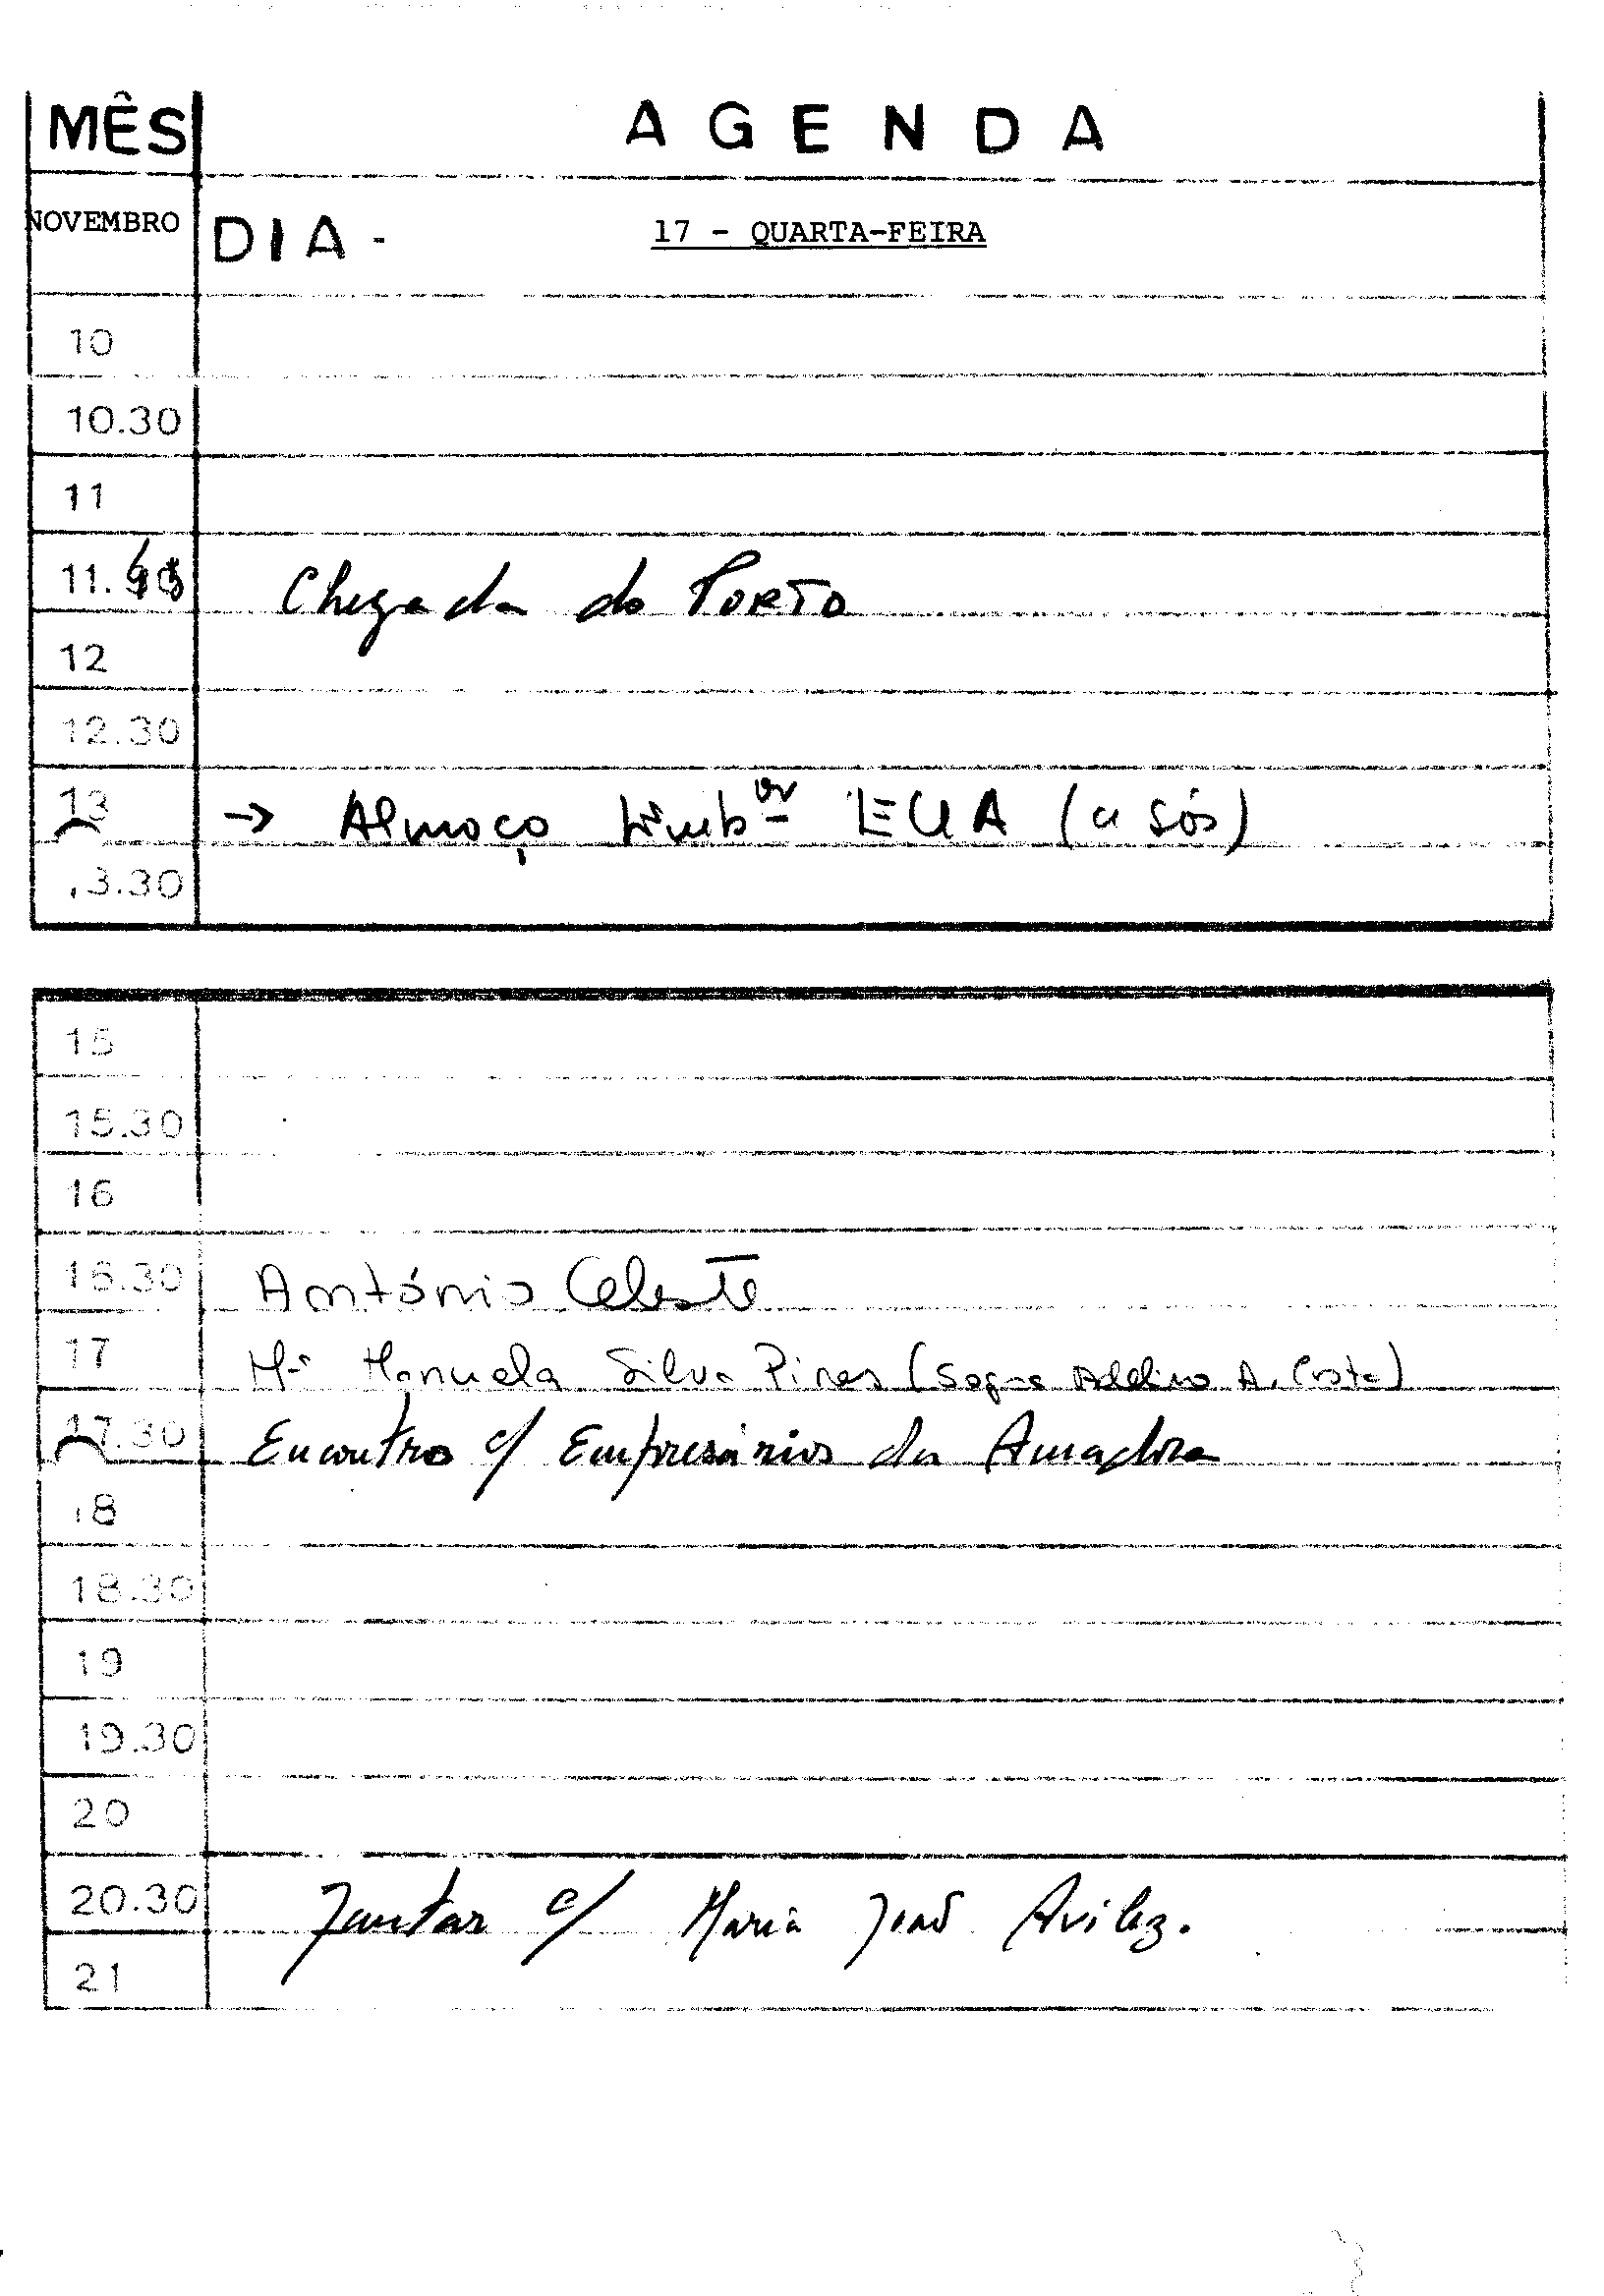 MÊS AGENDA
NOVEMBRO DIA - 17 - QUARTA-FEIRA
10
10.30
11
11. Chegada do PORTO
12
12.30
13 → Almoço Embor EUA (a sós)
13.30
15
15.30
16
16.30 António Celeste
17 Mª Manuela Silva Pires (Sogra Adelino A. Costa)
17.30 Encontro c/ Empresários da Amadora
18
18.30
19
19.30
20
20.30 Jantar c/ Maria João Avilez.
21